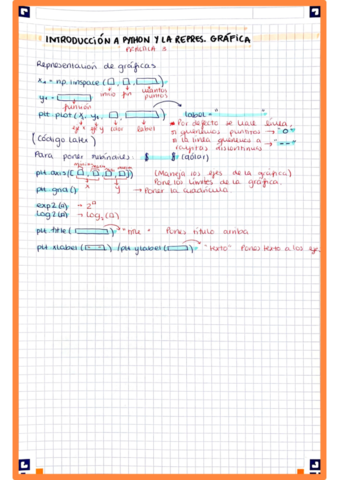 INTRODUCCIÓN A PYTHON Y LA REPRES. GRÁFICA
PRÁCTICA 3
Representación de gráficas
x = np. linspace (
inicio fin cuántos puntos
y =
función
plt. plot (x, y, label = "
eje x eje y color label
* Por defecto se hace línea,
si queremos puntitos → "o"
si la línea queremos a rayitas discontinuas → "--"
(Código Latex)
Para poner $ $ (dólar)
plt. axis([ ]) (Maneja los ejes de la gráfica)
x y Pone los límites de la gráfica.
plt. grid() → Poner la cuadrícula
exp2(a) → 2ᵃ
log2(a) → log₂(a)
plt. title ( ) "title" Pones título arriba
plt. xlabel( ) / plt. ylabel( ) "texto" Pones texto a los ejes